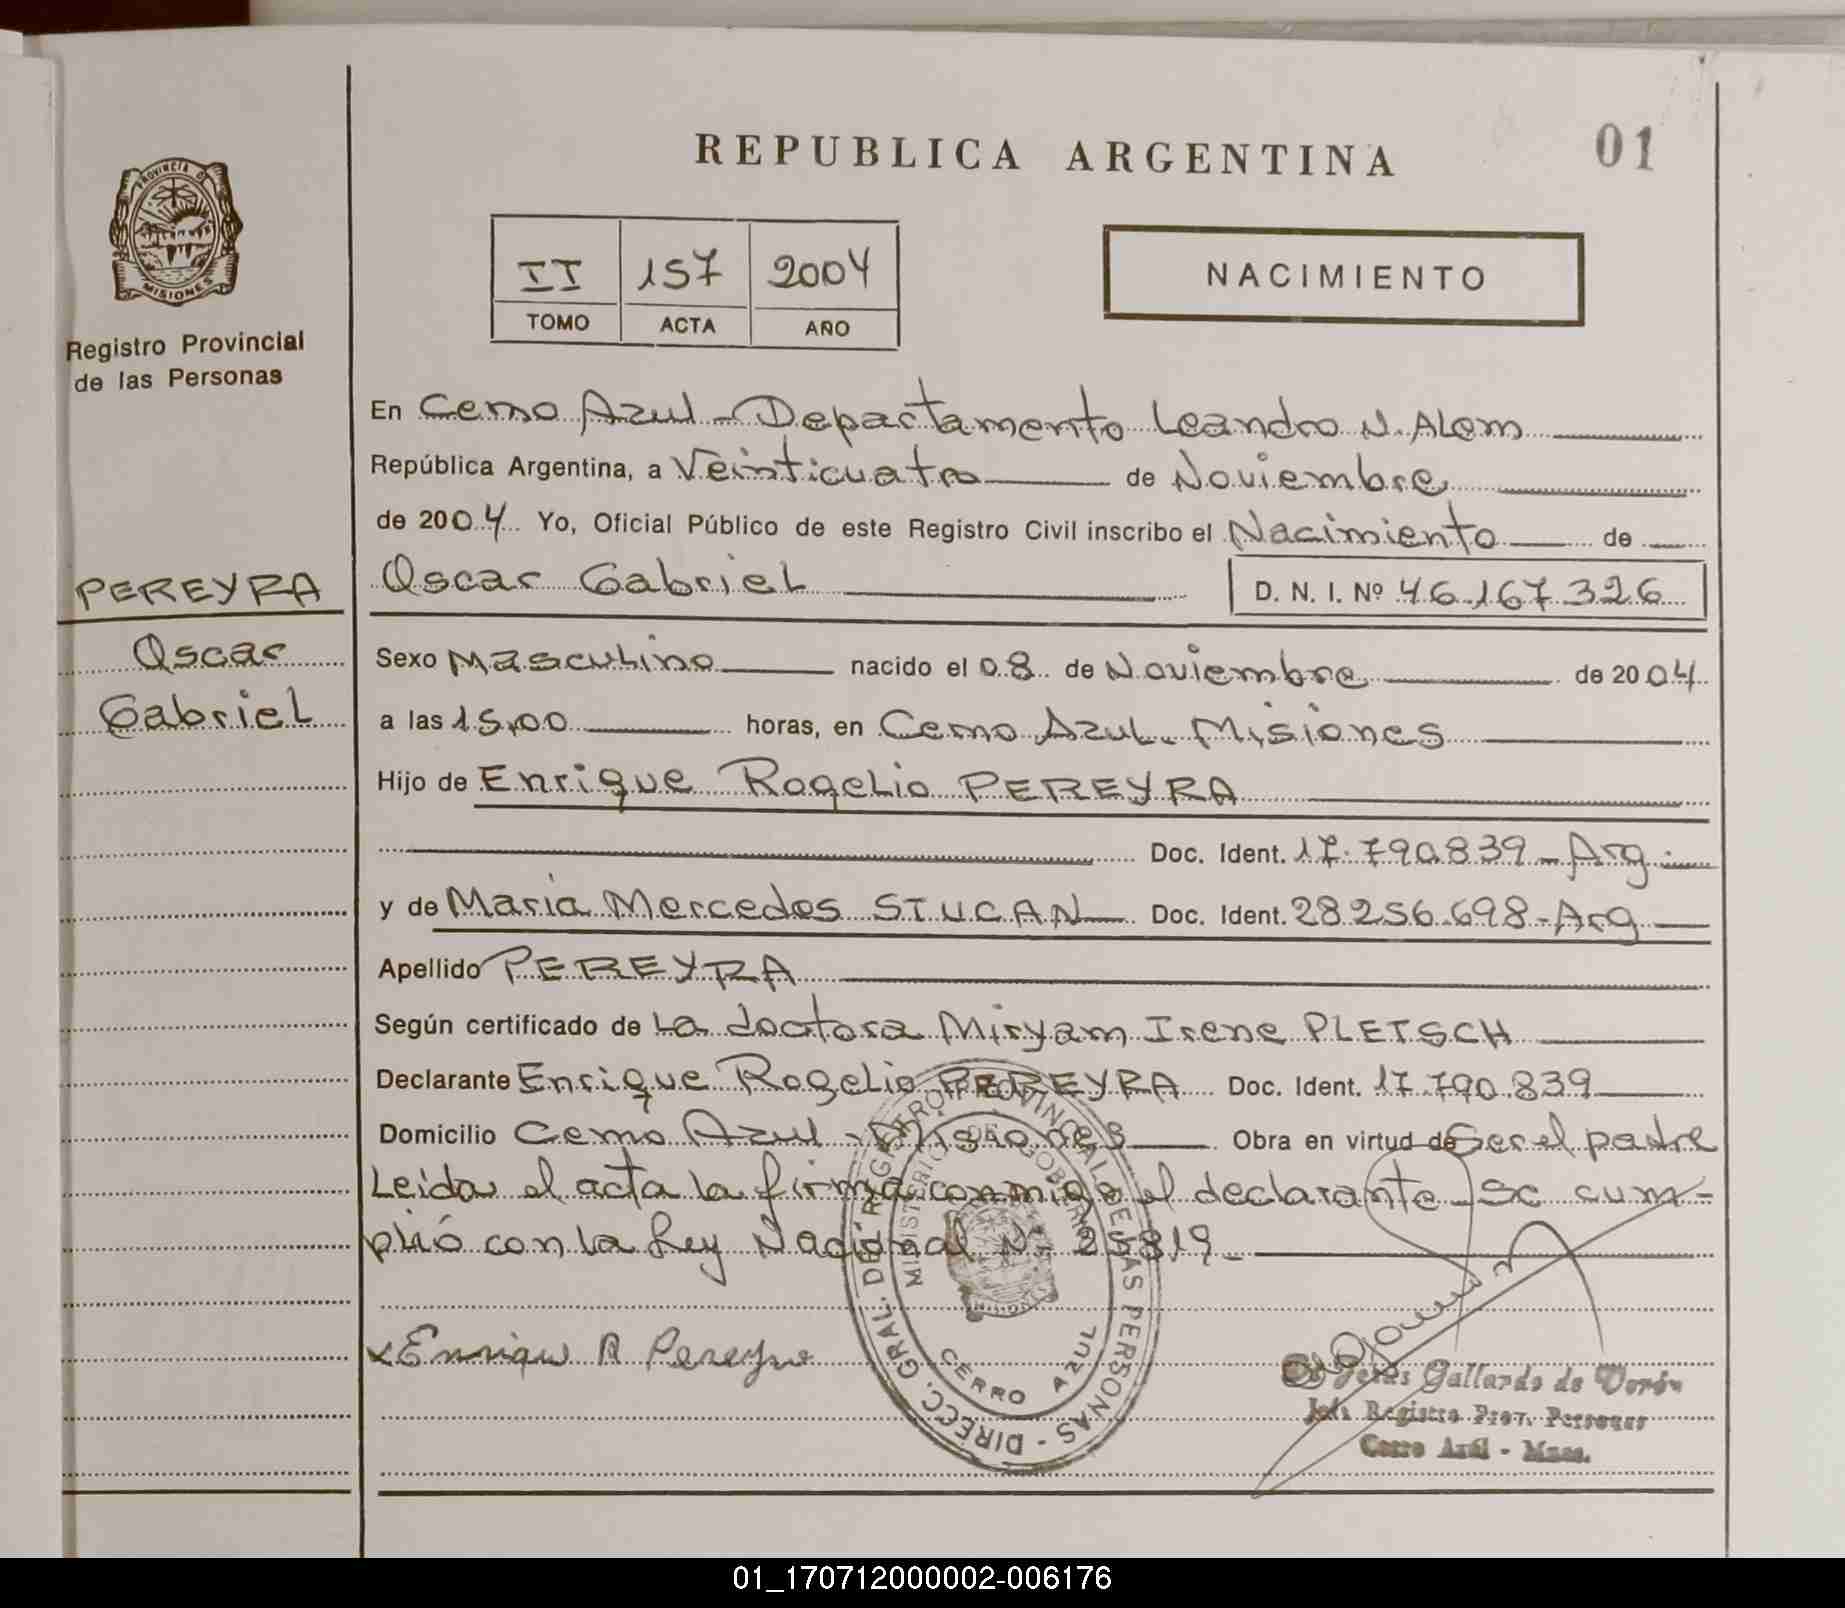 REPUBLICA ARGENTINA
01
PROVINCIA D
MISIONES
Registro Provincial
de las Personas
II 157 2004
TOMO ACTA AÑO
NACIMIENTO
En Cerro Azul - Departamento Leandro N. Alem
República Argentina, a Veinticuatro de Noviembre
de 2004. Yo, Oficial Público de este Registro Civil inscribo el Nacimiento de
PEREYRA
Oscar
Gabriel
Oscar Gabriel D. N. I. Nº 46.167.326
Sexo Masculino nacido el 08 de Noviembre de 2004
a las 15,00 horas, en Cerro Azul. Misiones
Hijo de Enrique Rogelio PEREYRA
Doc. Ident. 17.790.839 - Arg.
y de María Mercedes STUCAN Doc. Ident. 28.256.698 - Arg
Apellido PEREYRA
Según certificado de La doctora Miryam Irene PLETSCH
Declarante Enrique Rogelio PEREYRA Doc. Ident. 17.790.839
Domicilio Cerro Azul - Misiones Obra en virtud de Ser el padre
Leída el acta la firma conmigo el declarante - Se cum-
plió con la Ley Nacional Nº 25819 -
x Enrique R Pereyra
DIRECC. GRAL. DEL REGISTRO PROVINCIAL DE LAS PERSONAS
MINISTERIO DE GOBIERNO
CERRO AZUL
Gallardo de
Jefe Registro Prov. Personas
Cerro Azul - Mnes.
01_170712000002-006176